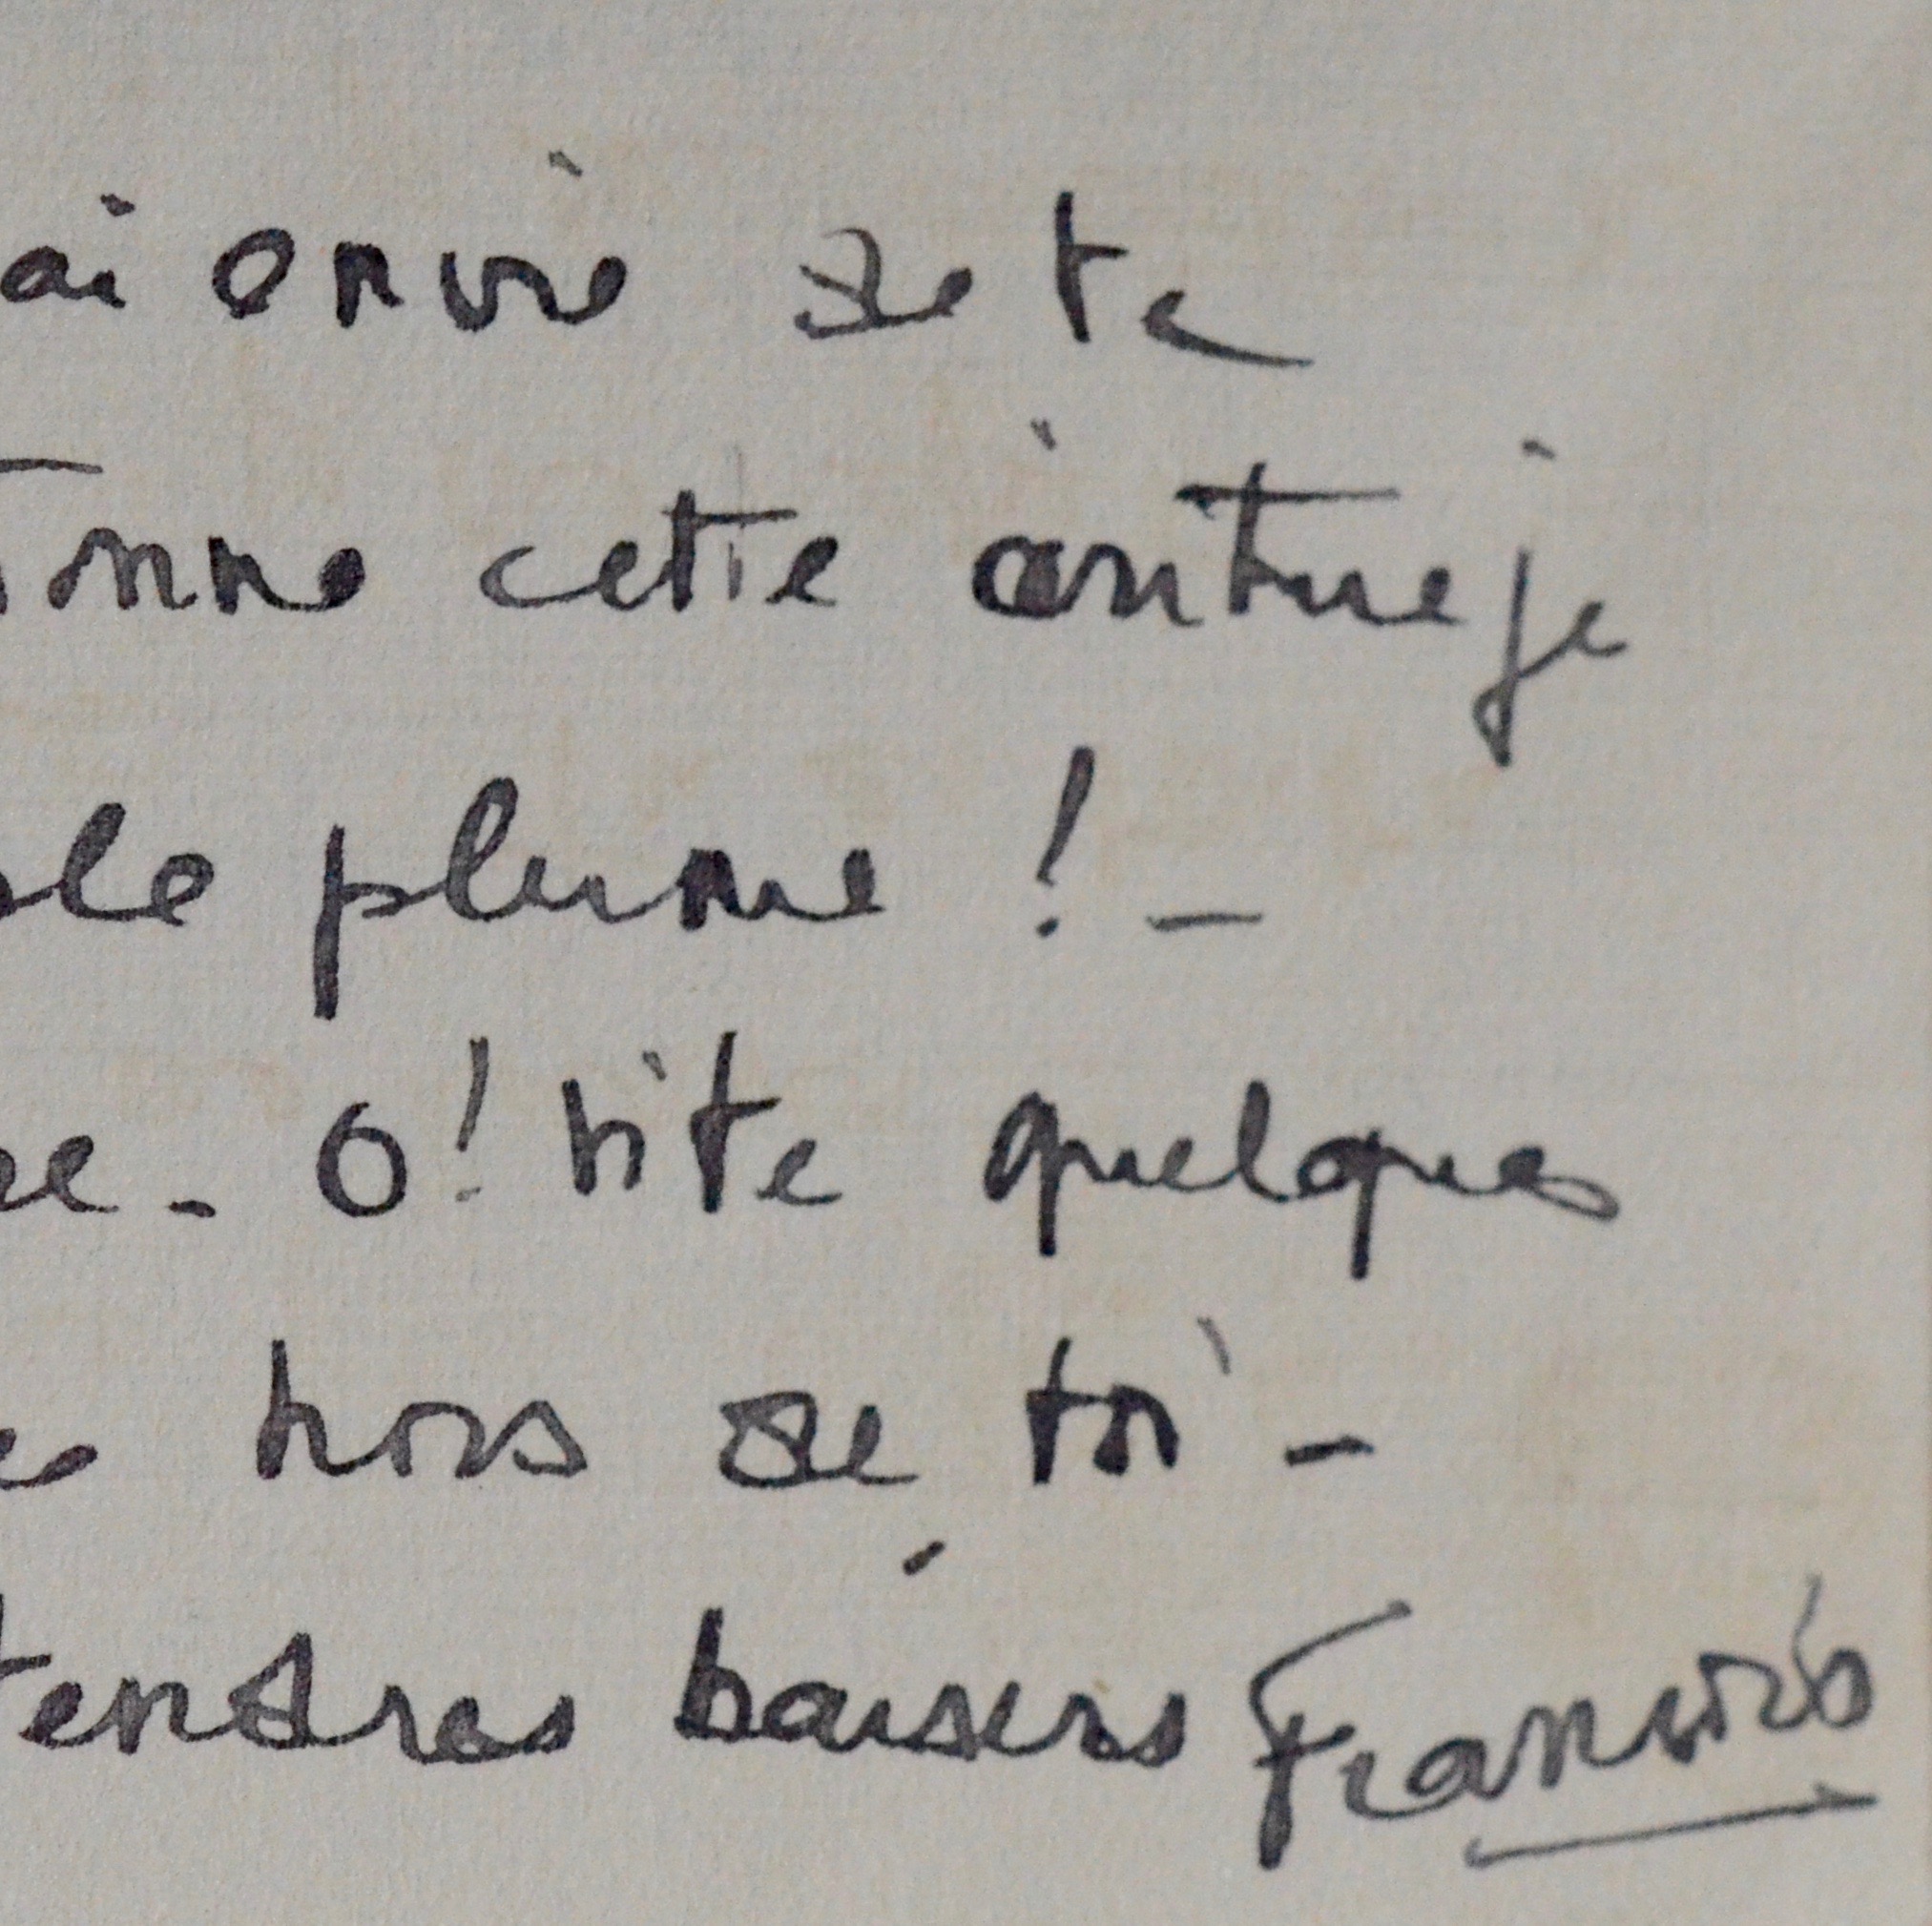 ai envie de te
tonne cette je
ble plume ! –
re – O! vite quelques
es hors de toi –
tendres baisers Francis